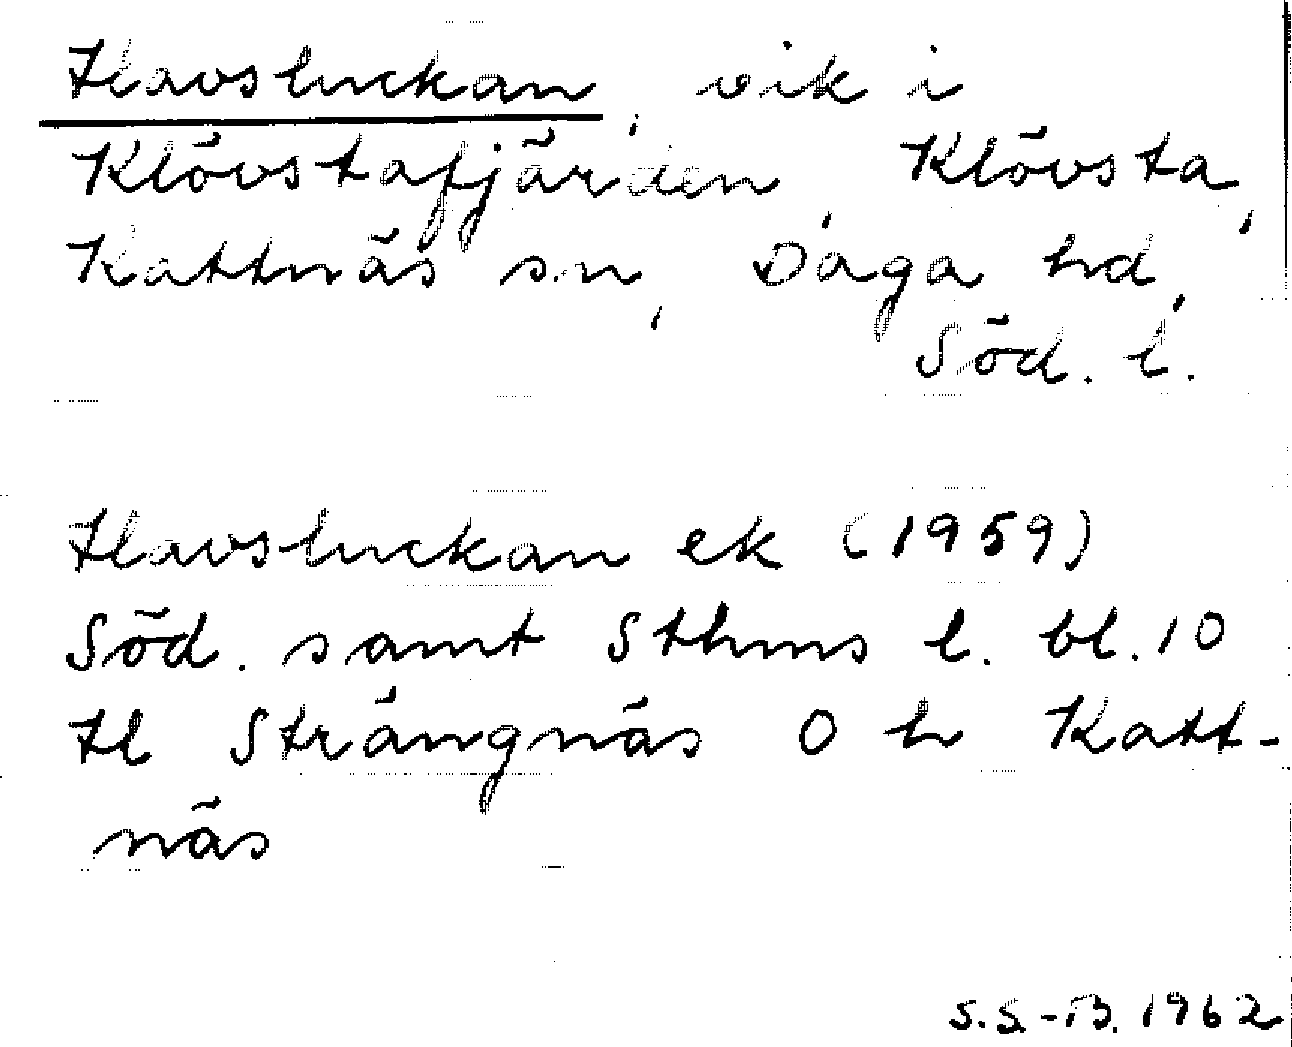 Havsluckan, vik i
Klövstafjärden, Klövsta,
Kattnäs sn, Daga hd,
Söd. l.
Havsluckan ek (1959)
Söd. samt Sthms l. bl. 10
Hl Strängnäs O h Katt-
näs
S.S.-B. 1962